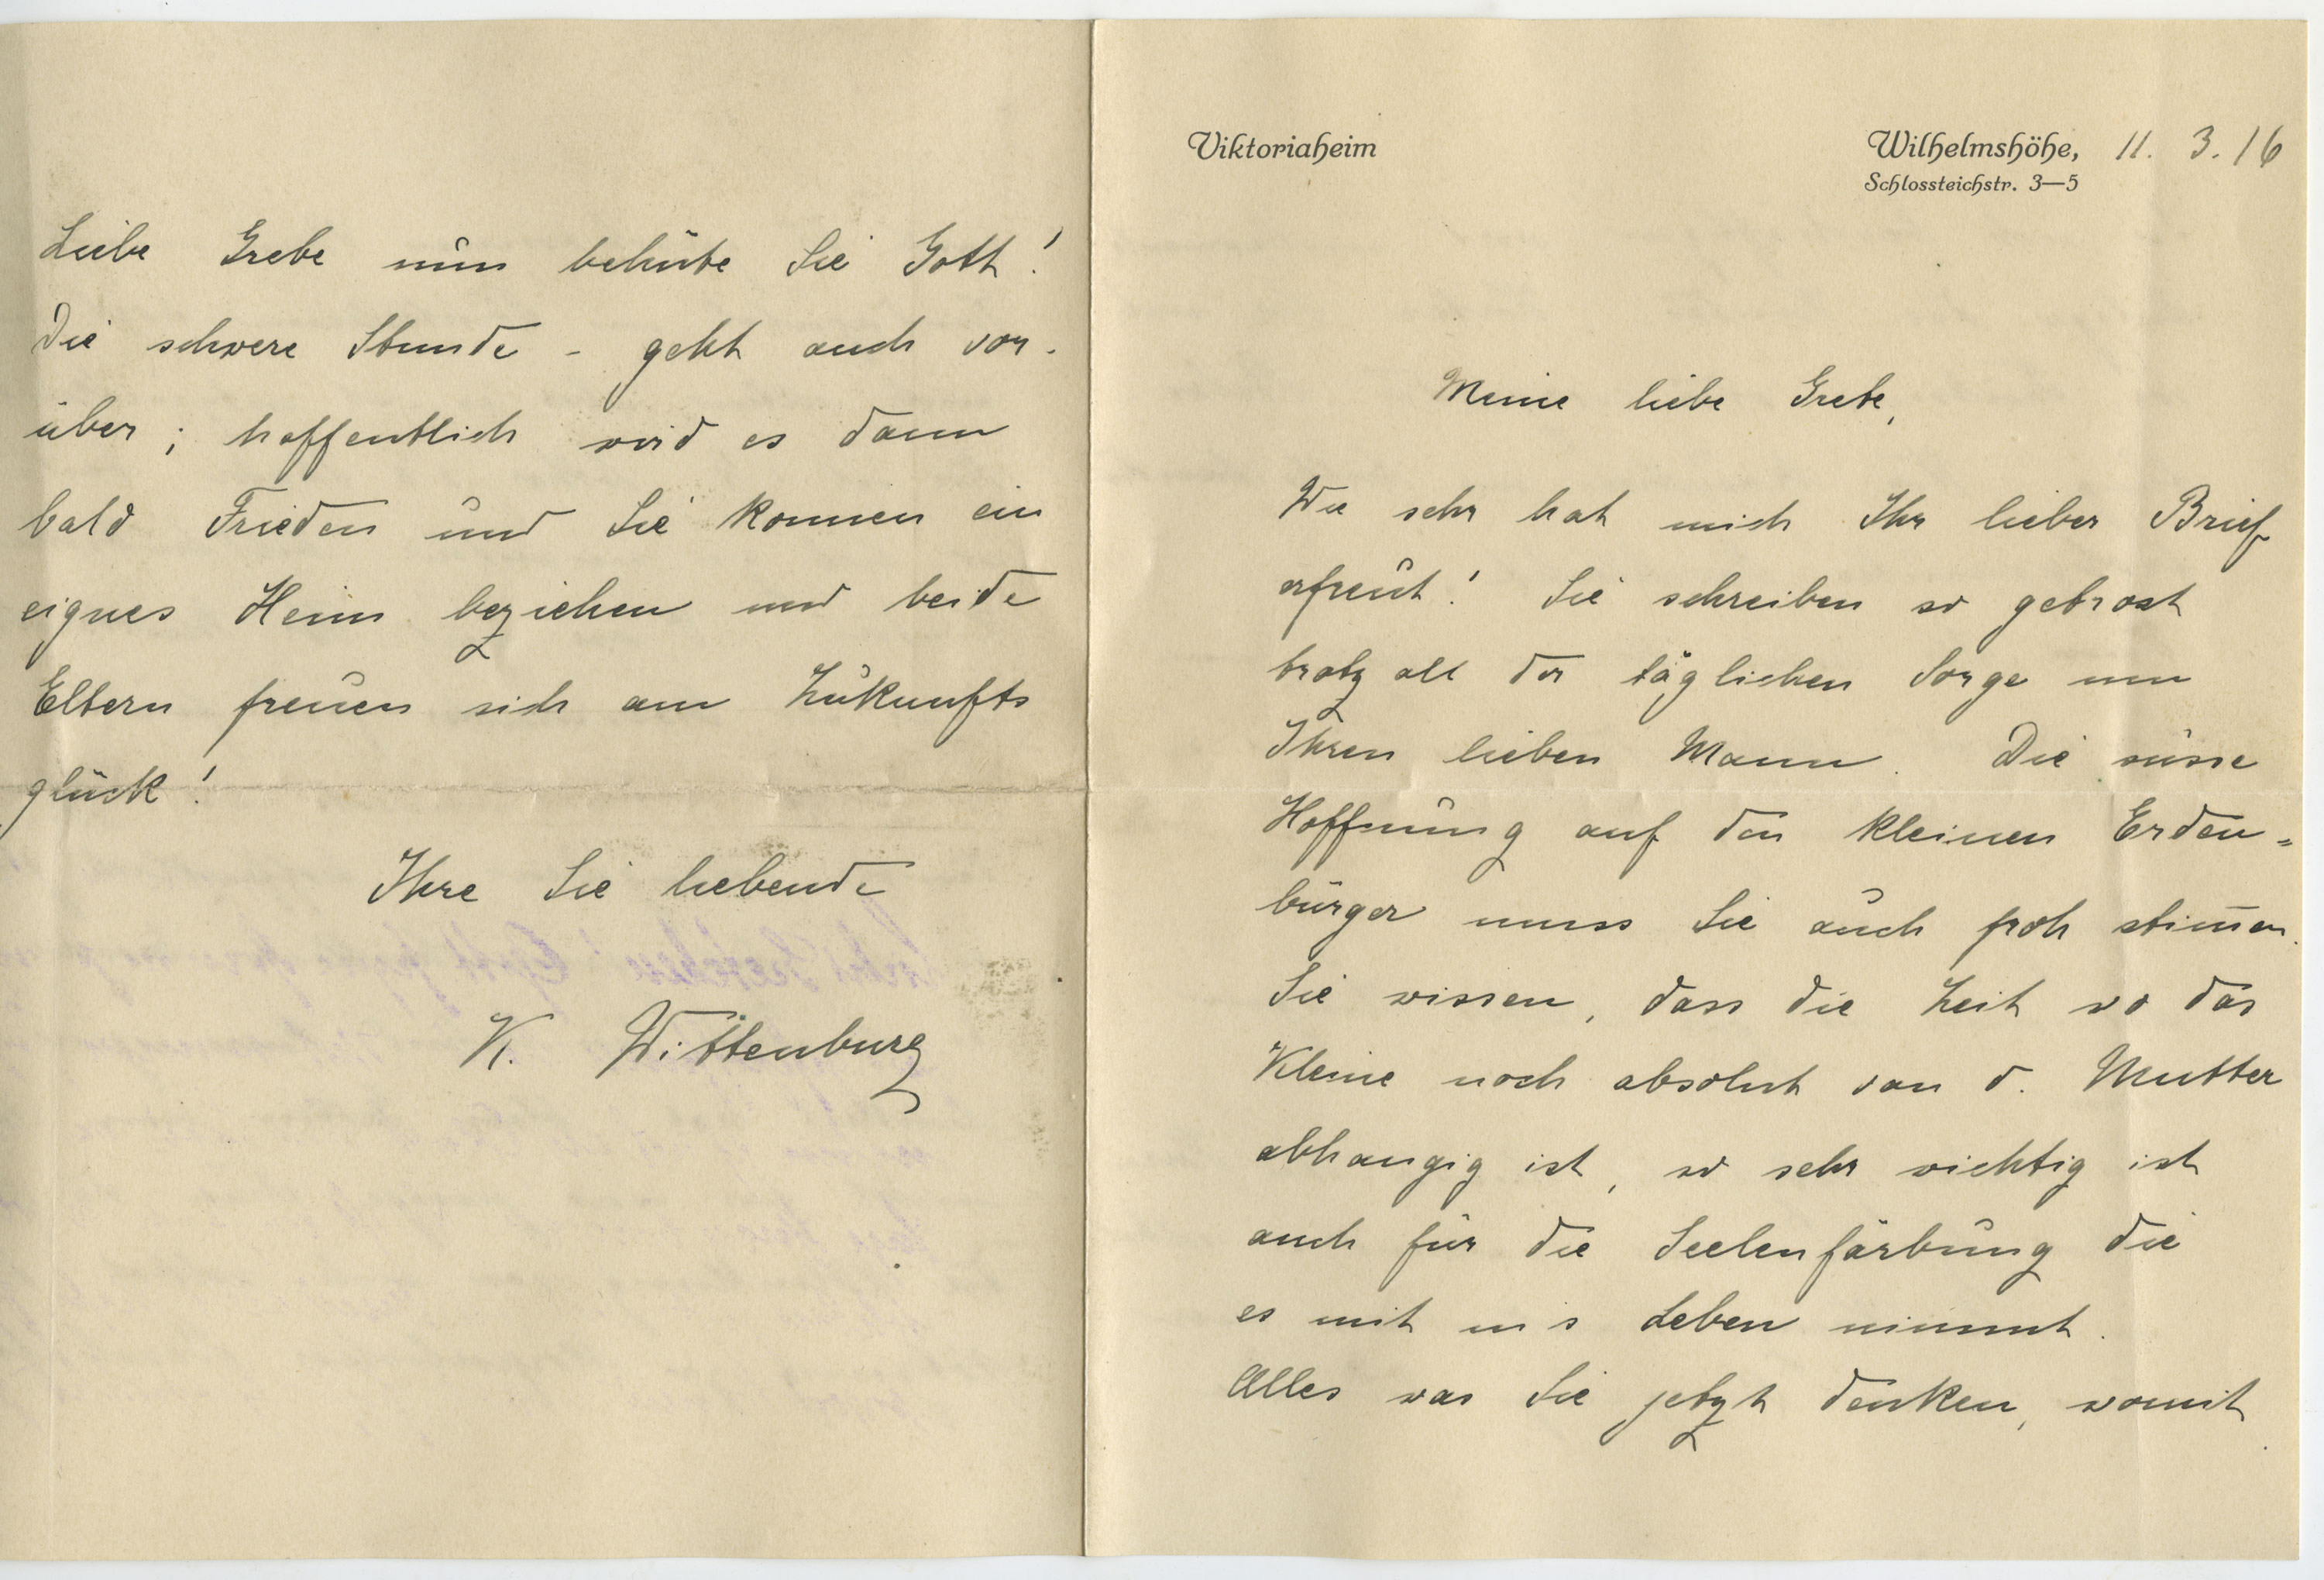 Viktoriaheim
Wilhelmshöhe, 11. 3. 16
Schlossteichstr. 3—5
Meine liebe Grete,
Wie sehr hat mich Ihr lieber Brief
erfreut! Sie schreiben so getrost
trotz all der täglichen Sorge um
Ihren lieben Mann. Die süsse
Hoffnung auf den kleinen Erden=
bürger muss Sie auch froh stim̄en.
Sie wissen, dass die Zeit wo das
Kleine noch absolut von d. Mutter
abhangig ist, so sehr wichtig ist
auch für die Seelenfärbung die
es mit ins Leben nimmt.
Alles was Sie jetzt denken, womit
Liebe Grete nun behüte Sie Gott!
Die schwere Stunde - geht auch vor-
über; hoffentlich wird es dann
bald Frieden und Sie konnen ein
eignes Heim beziehen und beide
Eltern freuen sich am Zukunfts
glück!
Ihre Sie liebende
K. Wittenburg